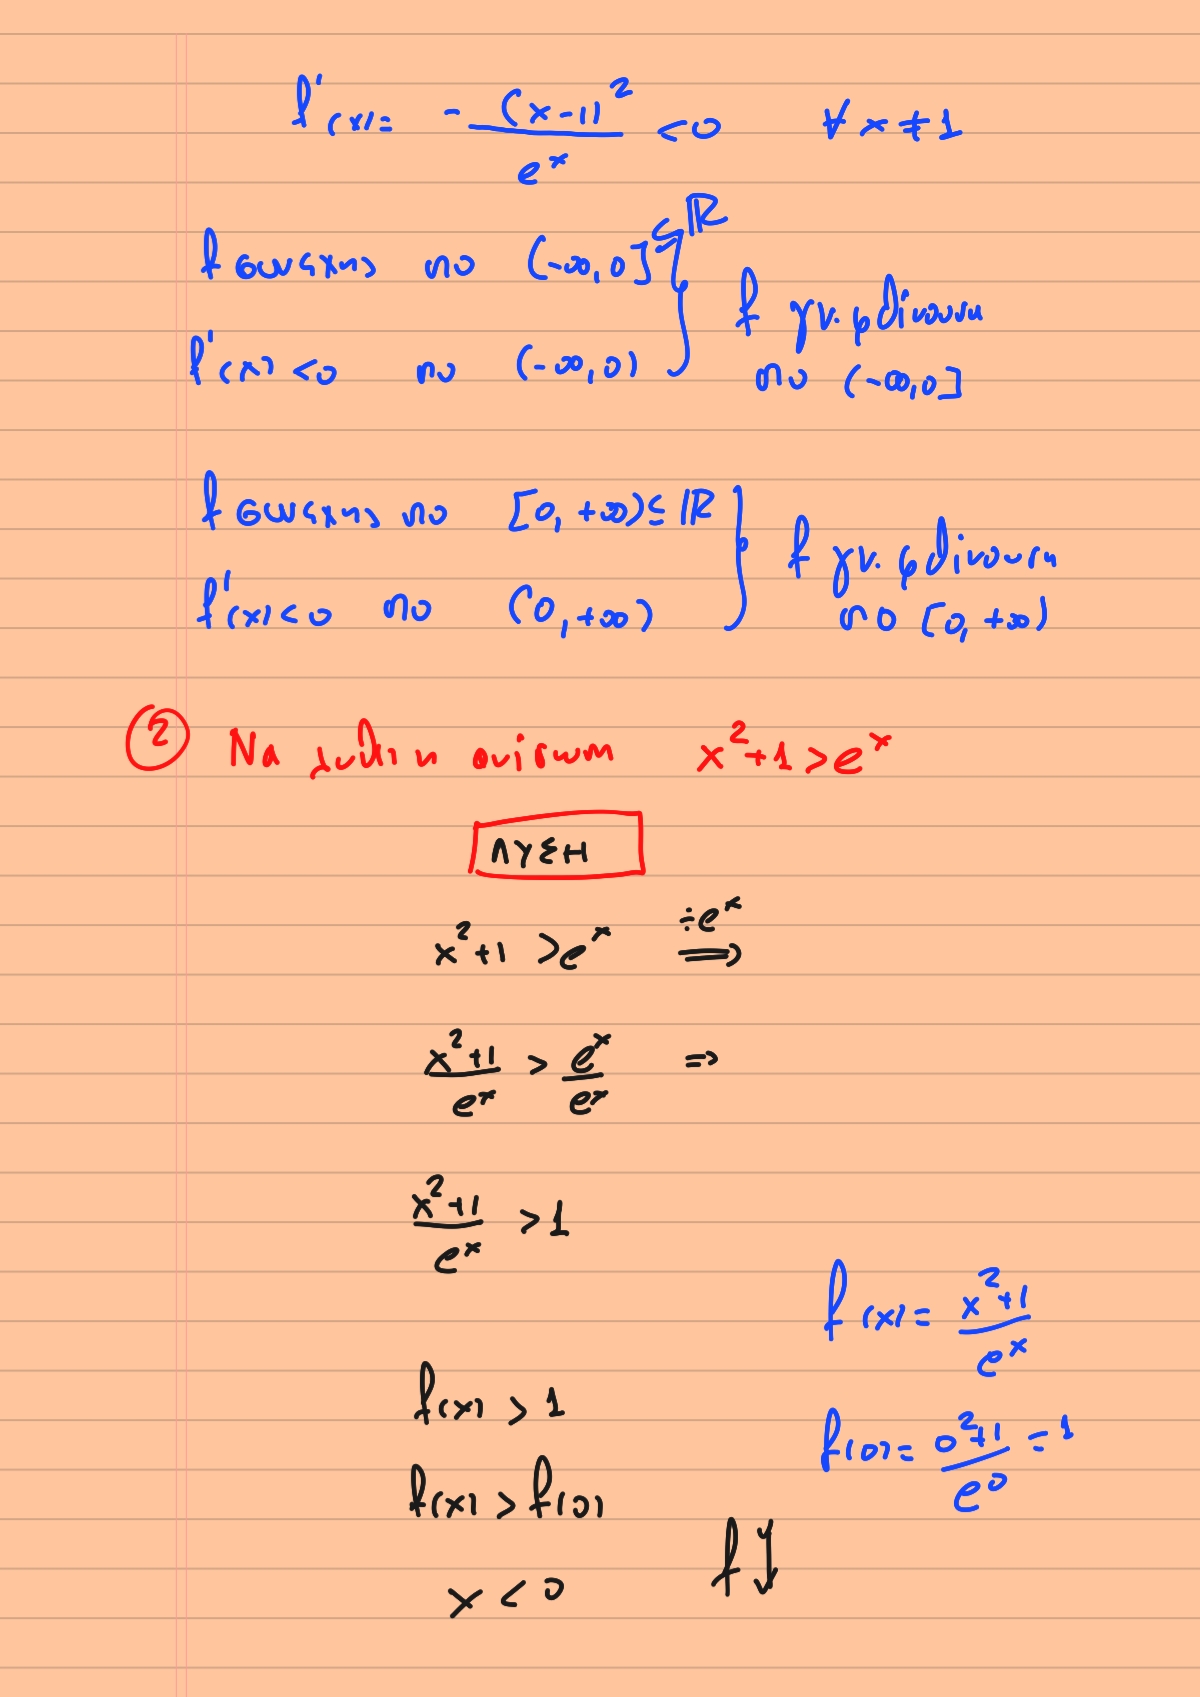 f'(x) = - (x-1)² / eˣ < 0 ∀ x ≠ 1
f συνεχής στο (-∞, 0] ⊆ ℝ
f'(x) < 0 στο (-∞, 0)
f γν. φθίνουσα
στο (-∞, 0]
f συνεχής στο [0, +∞) ⊆ ℝ
f'(x) < 0 στο (0, +∞)
f γν. φθίνουσα
στο [0, +∞)
② Να λυθεί η ανίσωση x² + 1 > eˣ
ΛΥΣΗ
x² + 1 > eˣ ÷eˣ ⟹
x² + 1 / eˣ > eˣ / eˣ ⇒
x² + 1 / eˣ > 1
f(x) = x² + 1 / eˣ
f(x) > 1
f(0) = 0² + 1 / e⁰ = 1
f(x) > f(0)
f ↓
x < 0